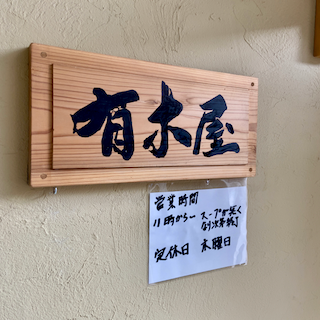 有木屋
営業時間
11時から〜 スープが無く
なり次第終了
定休日 木曜日